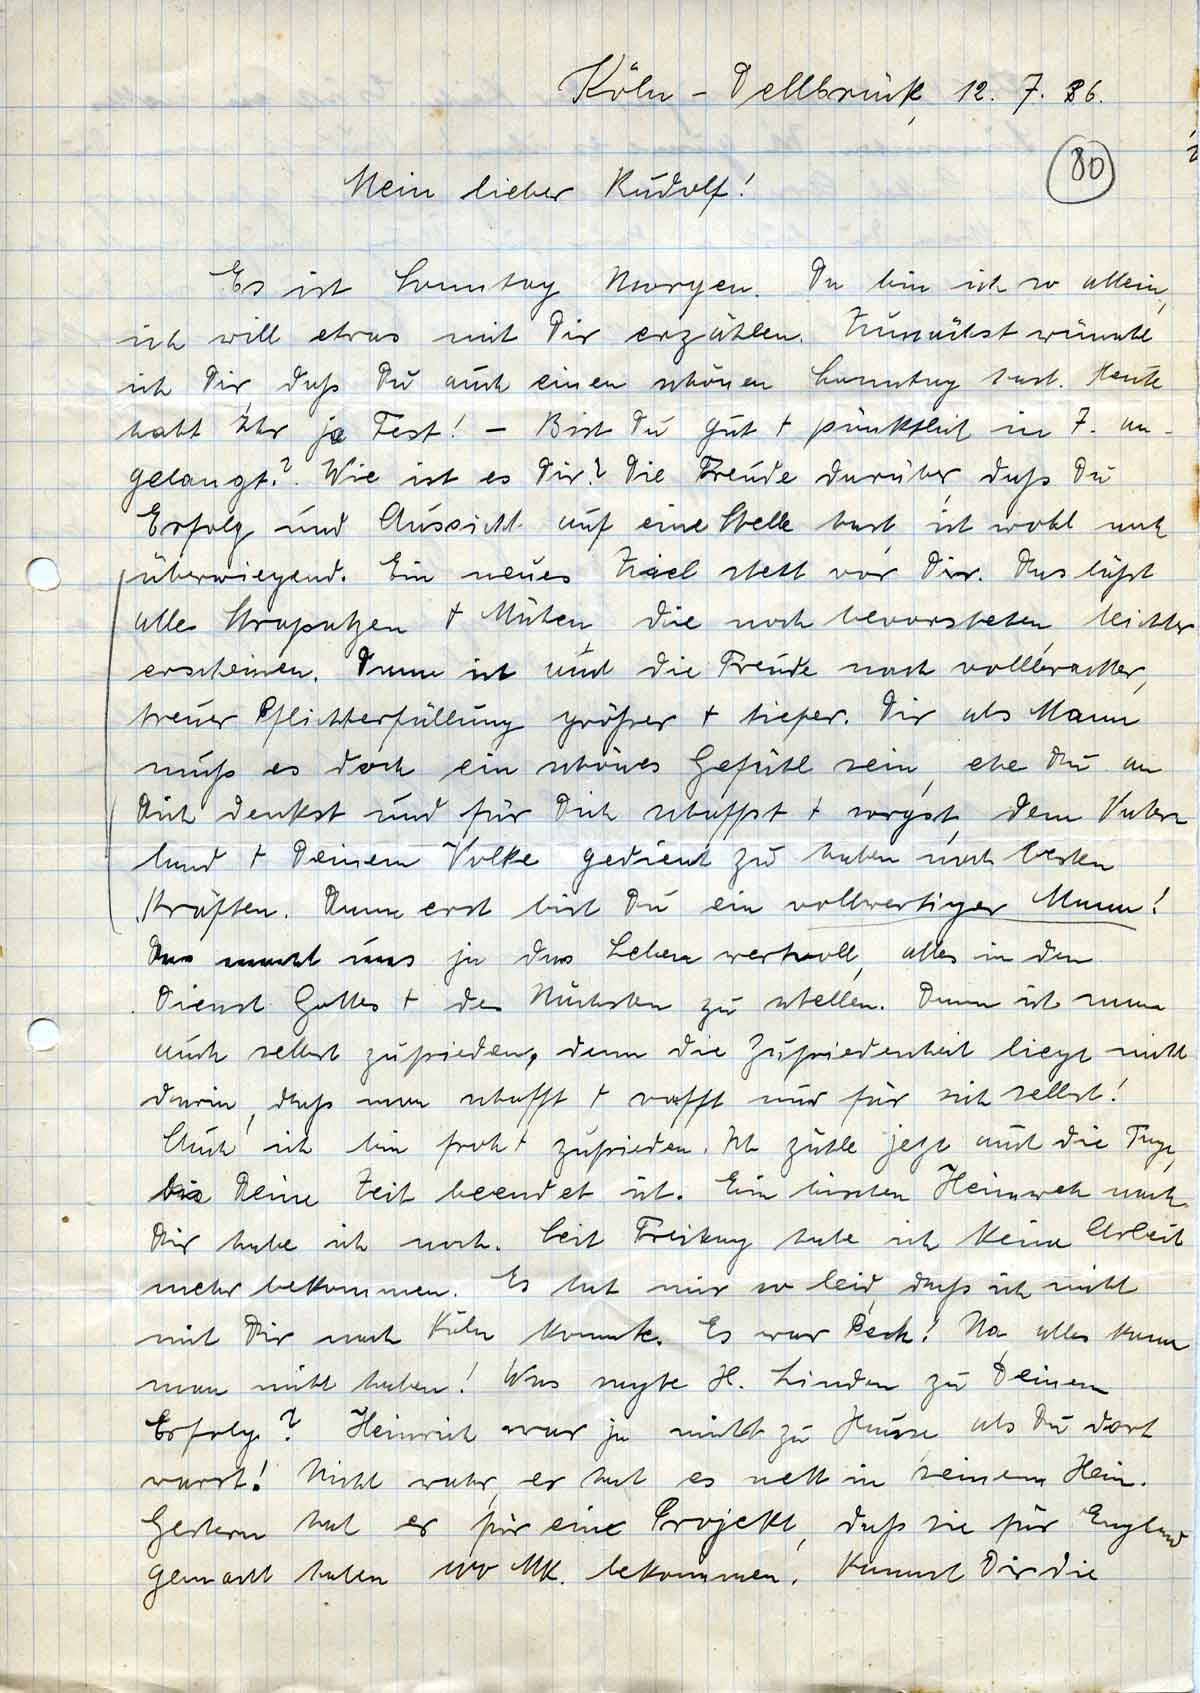 Köln-Dellbrück, 12. 7. 36.
80
Mein lieber Rudolf!
Es ist Sonntag Morgen. Da bin ich so allein,
ich will etwas mit Dir erzählen. Zunächst wünsche
ich Dir, daß Du auch einen schönen Sonntag hast. Heute
habt Ihr ja Fest! – Bist Du gut + pünktlich in Z. an-
gelangt? Wie ist es Dir? Die Freude darüber, daß Du
Erfolg und Aussicht auf eine Stelle hast, ist wohl auch
überwiegend. Ein neues Ziel steht vor Dir. Das läßt
alle Strapatzen + Mühen, die noch bevorstehen, leichter
erscheinen. Dann ist auch die Freude nach vollbrachter,
treuer Pflichterfüllung größer + tiefer. Dir als Mann
muß es doch ein schönes Gefühl sein, ehe Du an
Dich denkst und für Dich schaffst + sorgst, dem Vater-
land + Deinem Volke gedient zu haben nach besten
Kräften. Dann erst bist Du ein vollwertiger Mann!
Das macht uns ja das Leben wertvoll, alles in den
Dienst Gottes + des Nächsten zu stellen. Dann ist man
auch selbst zufrieden, denn die Zufriedenheit liegt nicht
darin, daß man schafft + rafft nur für sich selbst!
Auch ich bin froh + zufrieden. Ich zähle jetzt auch die Tage,
bis Deine Zeit beendet ist. Ein bischen Heimweh nach
Dir habe ich noch. Seit Freitag habe ich keine Arbeit
mehr bekommen. Es tut mir so leid, daß ich nicht
mit Dir nach Köln konnte. Es war Pech! Na, alles kann
man nicht haben! Was sagte H. Linden zu Deinem
Erfolg? Heinrich war ja nicht zu Hause als Du dort
warst! Nicht wahr, er hat es nett in seinem Heim.
Gestern hat er für eine Projekt, daß sie für England
gemacht haben 100 Mk. bekommen. Kannst Dir die